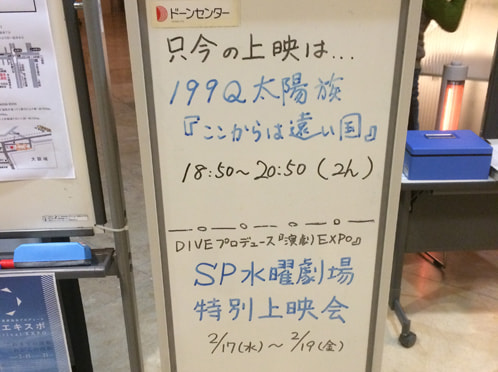 ドーンセンター
只今の上映は...
199Q太陽族
『ここからは遠い国』
18:50〜20:50(2h)
DIVEプロデュース『演劇EXPO』
SP水曜劇場
特別上映会
2/17(水)〜2/19(金)
エキスポ
大阪城